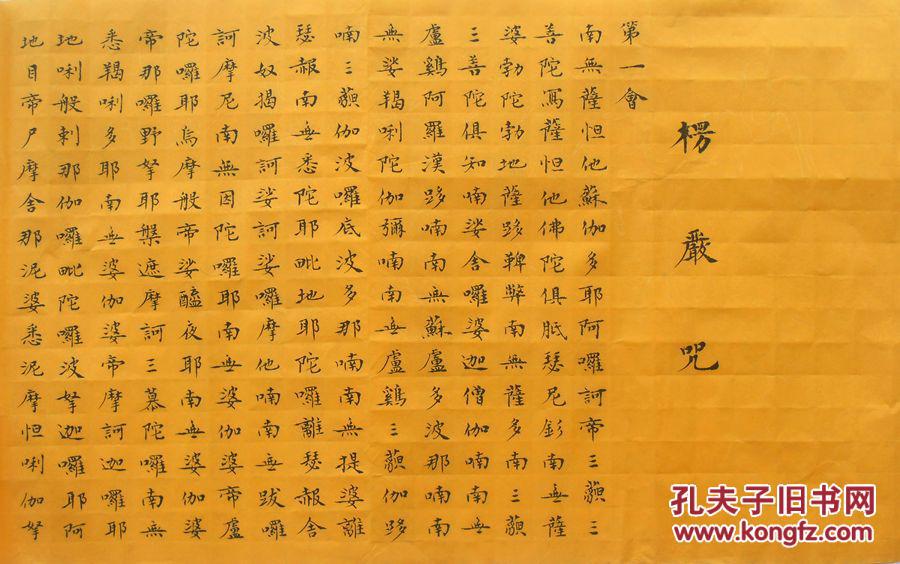 楞嚴咒
第一會
南無薩怛他蘇伽多耶阿囉訶帝三藐三
善陀寫薩怛他佛陀俱胝瑟尼釤南無薩
婆勃陀勃地薩跢鞞弊南無薩多南三藐
三善陀俱知喃娑舍囉婆迦僧伽喃南無
盧雞阿羅漢跢喃南無蘇盧多波那喃南
無娑羯唎陀伽彌喃南無盧雞三藐伽跢
喃三藐伽波囉底波多那喃南無提婆離
瑟赧南無悉陀耶毗地耶陀囉離瑟赧舍
波奴揭囉訶娑訶娑囉摩他喃南無跋囉
訶摩尼南無因陀囉耶南無婆伽婆帝盧
陀囉耶烏摩般帝娑醯夜耶南無婆伽婆
帝那囉野拏耶槃遮摩訶三慕陀囉南無
悉羯唎多耶南無婆伽婆帝摩訶迦囉耶
地唎般剌那伽囉毗陀囉波拏迦囉耶阿
地目帝尸摩舍那泥婆悉泥摩怛唎伽拏
孔夫子旧书网
www.kongfz.com